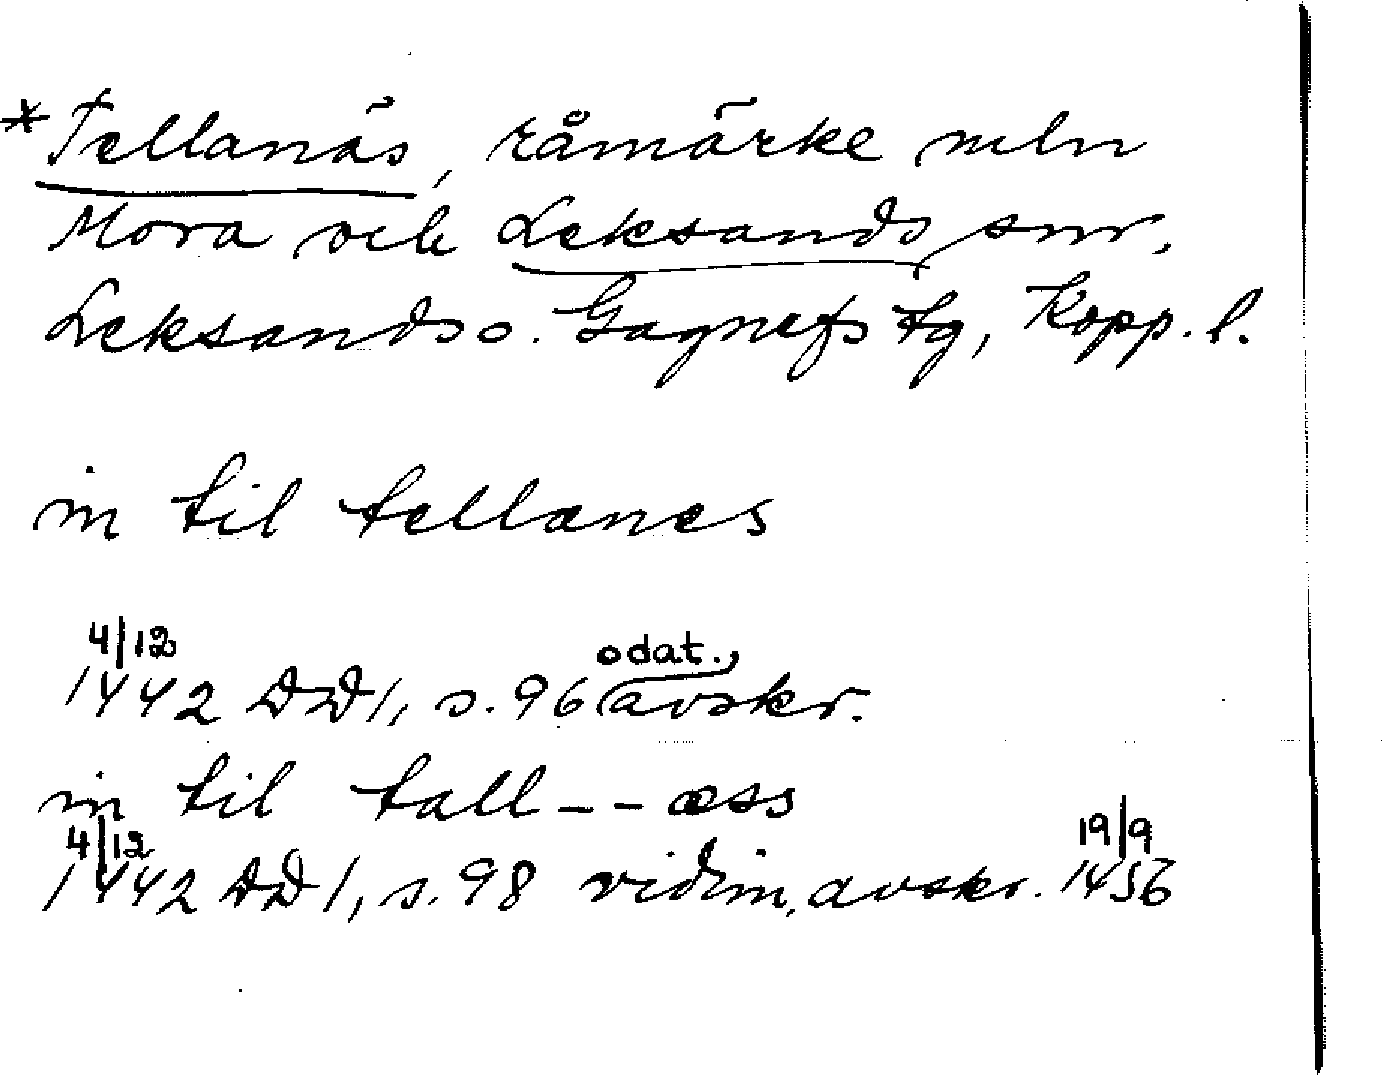 *Tellanäs, råmärke mln
Mora och Leksands snr,
Leksands o. Gagnefs tg, Kopp. l.
in til tellanes
4/12
1442 DD1, s. 96 odat., avskr.
in til tall--æss
4/12 19/9
1442 DD1, s. 98 vidim. avskr. 1456